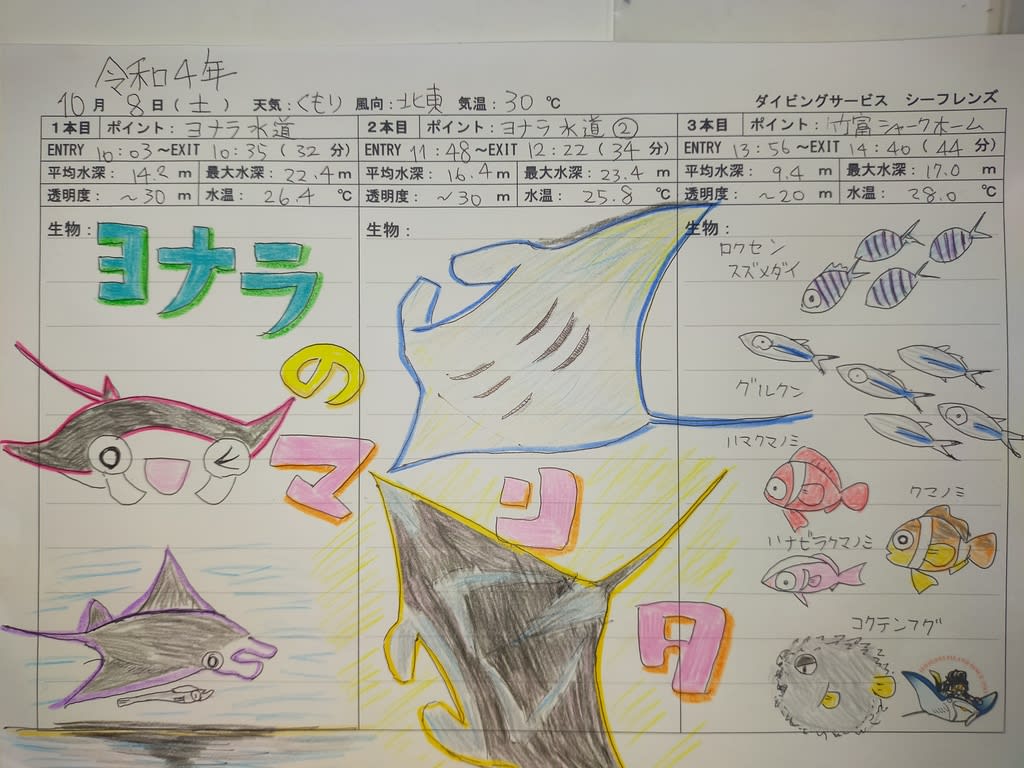 令和4年
10月 8日(土) 天気:くもり 風向:北東 気温:30℃ ダイビングサービス シーフレンズ
1本目 ポイント:ヨナラ水道
ENTRY 10:03~EXIT 10:35(32分)
平均水深:14.2m 最大水深:22.4m
透明度:~30m 水温:26.4℃
生物:
2本目 ポイント:ヨナラ水道②
ENTRY 11:48~EXIT 12:22(34分)
平均水深:16.4m 最大水深:23.4m
透明度:~30m 水温:25.8℃
生物:
3本目 ポイント:竹富シャークホーム
ENTRY 13:56~EXIT 14:40(44分)
平均水深:9.4m 最大水深:17.0m
透明度:~20m 水温:28.0℃
生物:
ヨナラ
の
マンタ
ロクセン
スズメダイ
グルクン
ハマクマノミ
クマノミ
ハナビラクマノミ
コクテンフグ